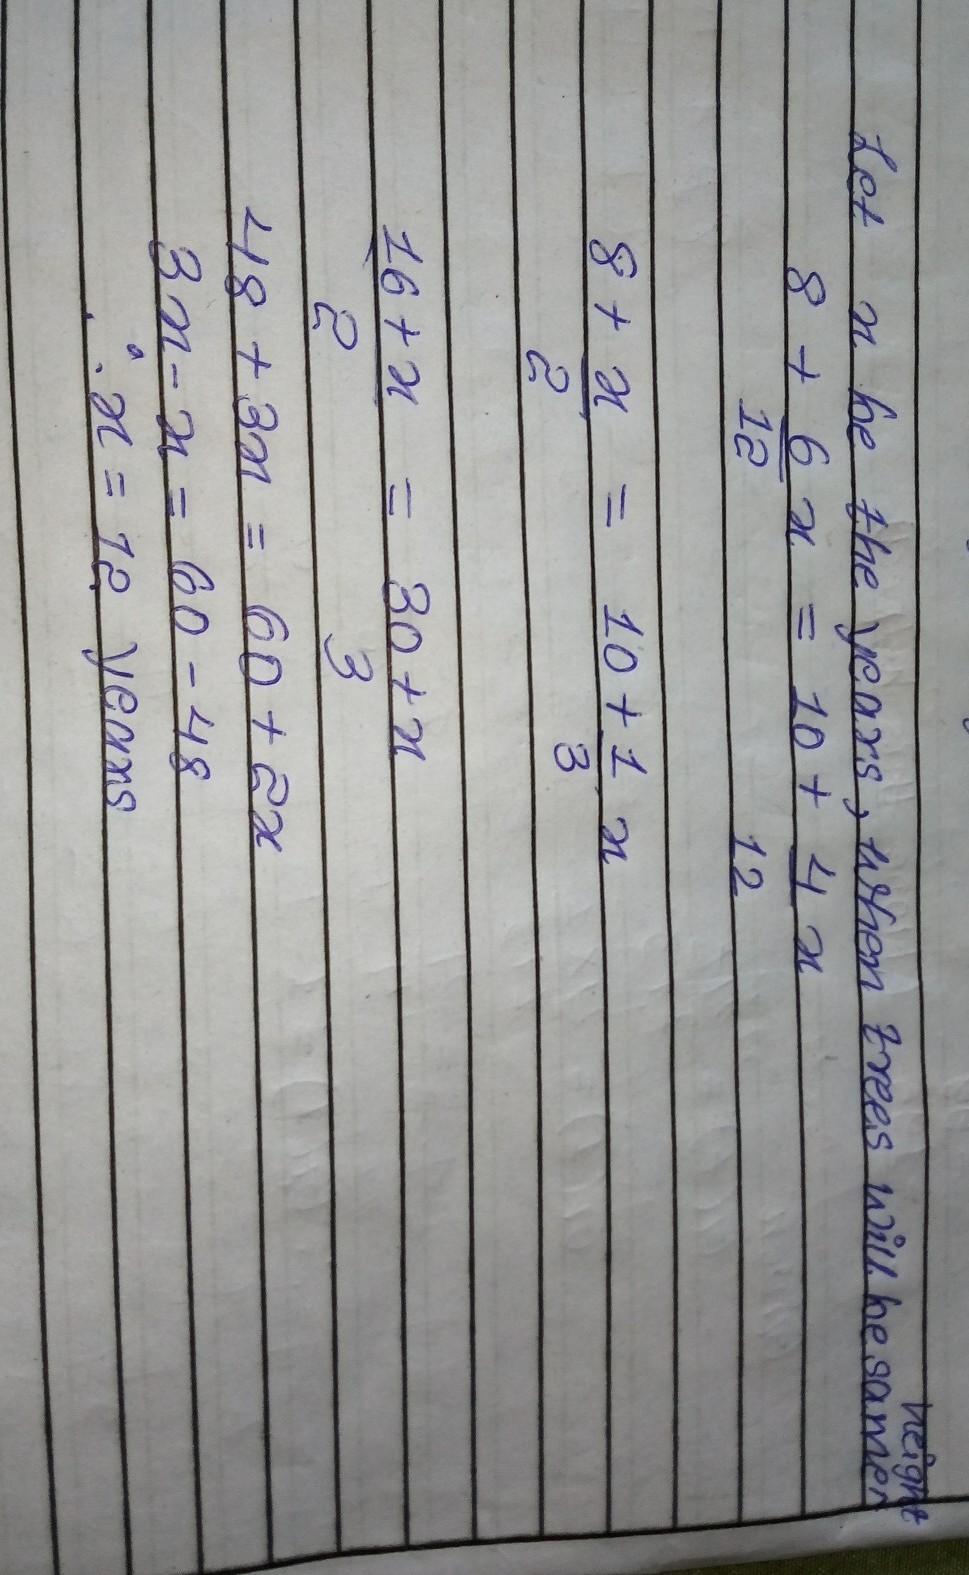 Let x be the years, when trees will be same height
8 + 6/12 x = 10 + 4/12 x
8 + x/2 = 10 + 1/3 x
16 + x/2 = 30 + x/3
48 + 3x = 60 + 2x
3x - x = 60 - 48
∴ x = 12 years